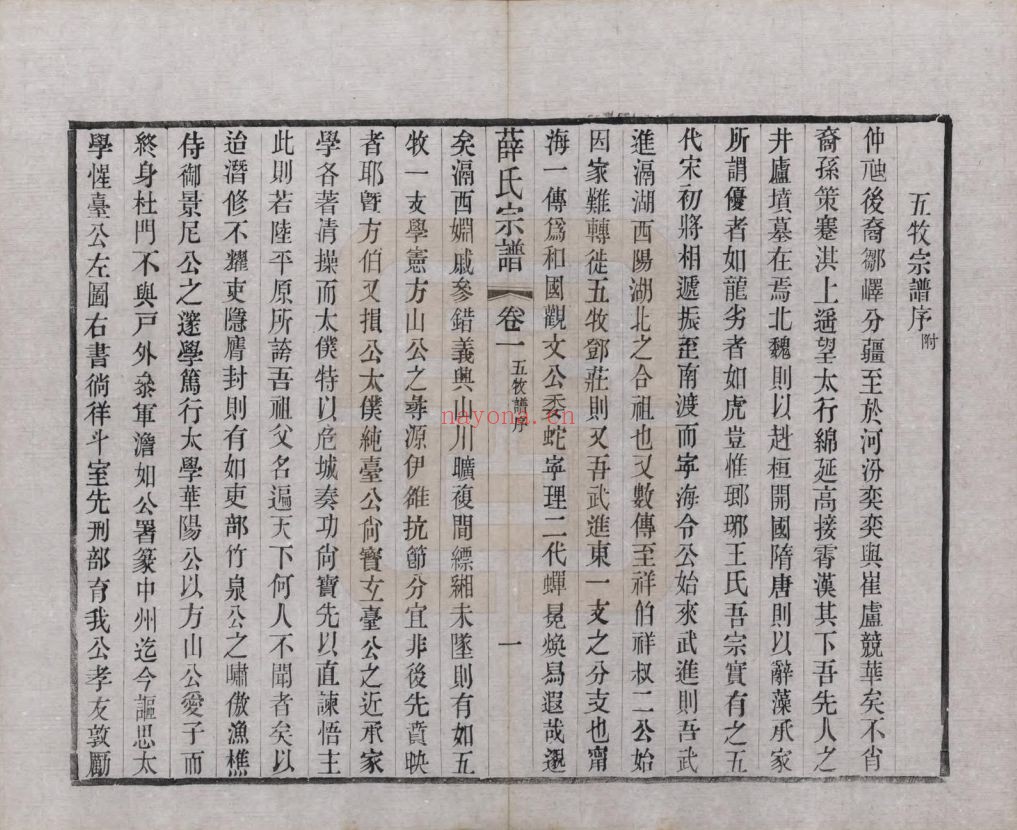 五牧宗譜序 附
仲虺後裔鄒嶧分疆至於河汾奕奕與崔盧競華矣不肖
裔孫策蹇淇上遥望太行綿延高接霄漢其下吾先人之
井廬墳墓在焉北魏則以赳桓開國隋唐則以辭藻承家
所謂優者如龍劣者如虎豈惟瑯琊王氏吾宗實有之五
代宋初將相遞振至南渡而寧海令公始來武進則吾武
進滆湖西陽湖北之合祖也又數傳至祥伯祥叔二公始
因家難轉徙五牧鄧莊則又吾武進東一支之分支也甯
海一傳爲和國觀文公委蛇寧理二代蟬冕煥舄遐哉邈
薛氏宗譜 卷一 五牧譜序 一
矣滆西婣戚參錯義興山川曠複間縹緗未墜則有如五
牧一支學憲方山公之尋源伊雒抗節分宜非後先賁映
者耶曁方伯又損公太僕純臺公尙寶玄臺公之近承家
學各著清操而太僕特以危城奏功尙寶先以直諫悟主
此則若陸平原所誇吾祖父名遍天下何人不聞者矣以
迨潛修不耀吏隱膺封則有如吏部竹泉公之嘯傲漁樵
侍御景尼公之邃學篤行太學華陽公以方山公愛子而
終身杜門不與戸外叅軍澹如公署篆中州迄今謳思太
學惺臺公左圖右書徜徉斗室先刑部育我公孝友敦勵
nayona.cn